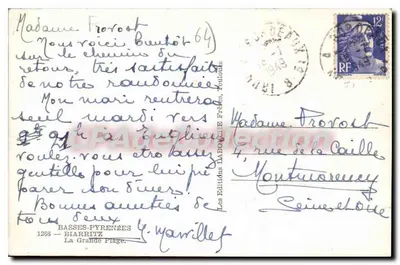 Madame Provost
Nous voici bientôt
sur le chemin du
retour, très satisfaits
de notre randonnée
Mon mari rentrera
seul mardi vers
à Enghien
voulez-vous être assez
gentille pour lui pré
parer son dîner!
Bonnes amitiés de
tous deux
64)
BASSES-PYRÉNÉES
1268 - BIARRITZ
La Grande Plage.
Les Éditions
12F
RF
Madame Provost
4, rue de la Caille
Montmorency
Seine et Oise